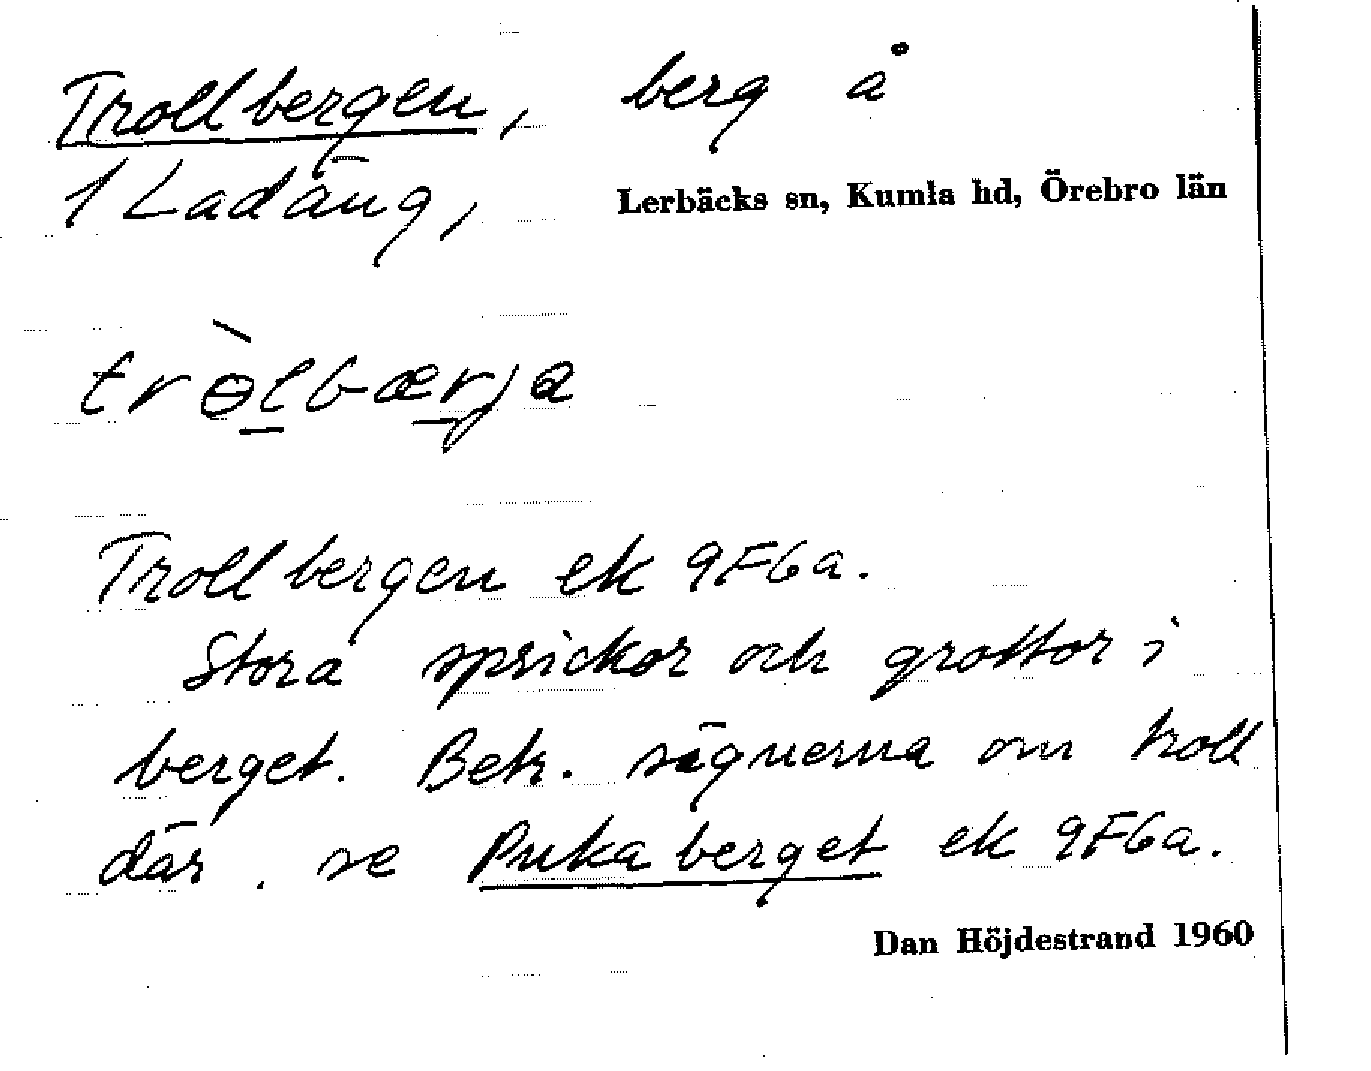 Trollbergen, berg å
1 Ladäng, Lerbäcks sn, Kumla hd, Örebro län
trɵ̀lbærja
Trollbergen ek 9F6a.
Stora sprickor och grottor i
berget. Betr. sägnerna om troll
där. se Pukaberget ek 9F6a.
Dan Höjdestrand 1960